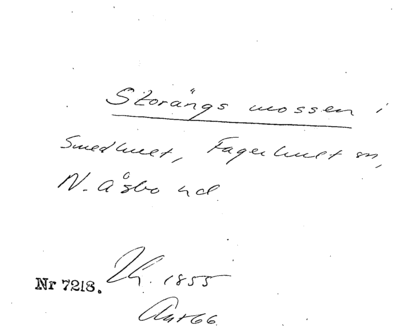 Storängs mossen i
Smedhult, Fagerhult sn,
N. Åsbo hd.
Nr 7218. 1855